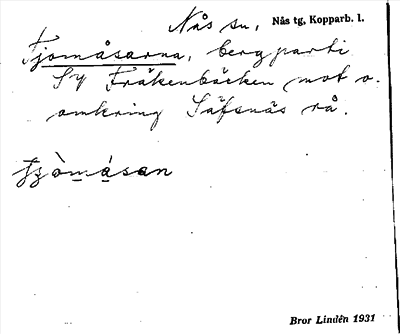 Nås sn, Nås tg, Kopparb. l.
Fjomåsarna, bergparti
Sy Fräkenbäcken mot o.
omkring Säfsnäs rå.
fjòmásan
Bror Lindén 1931